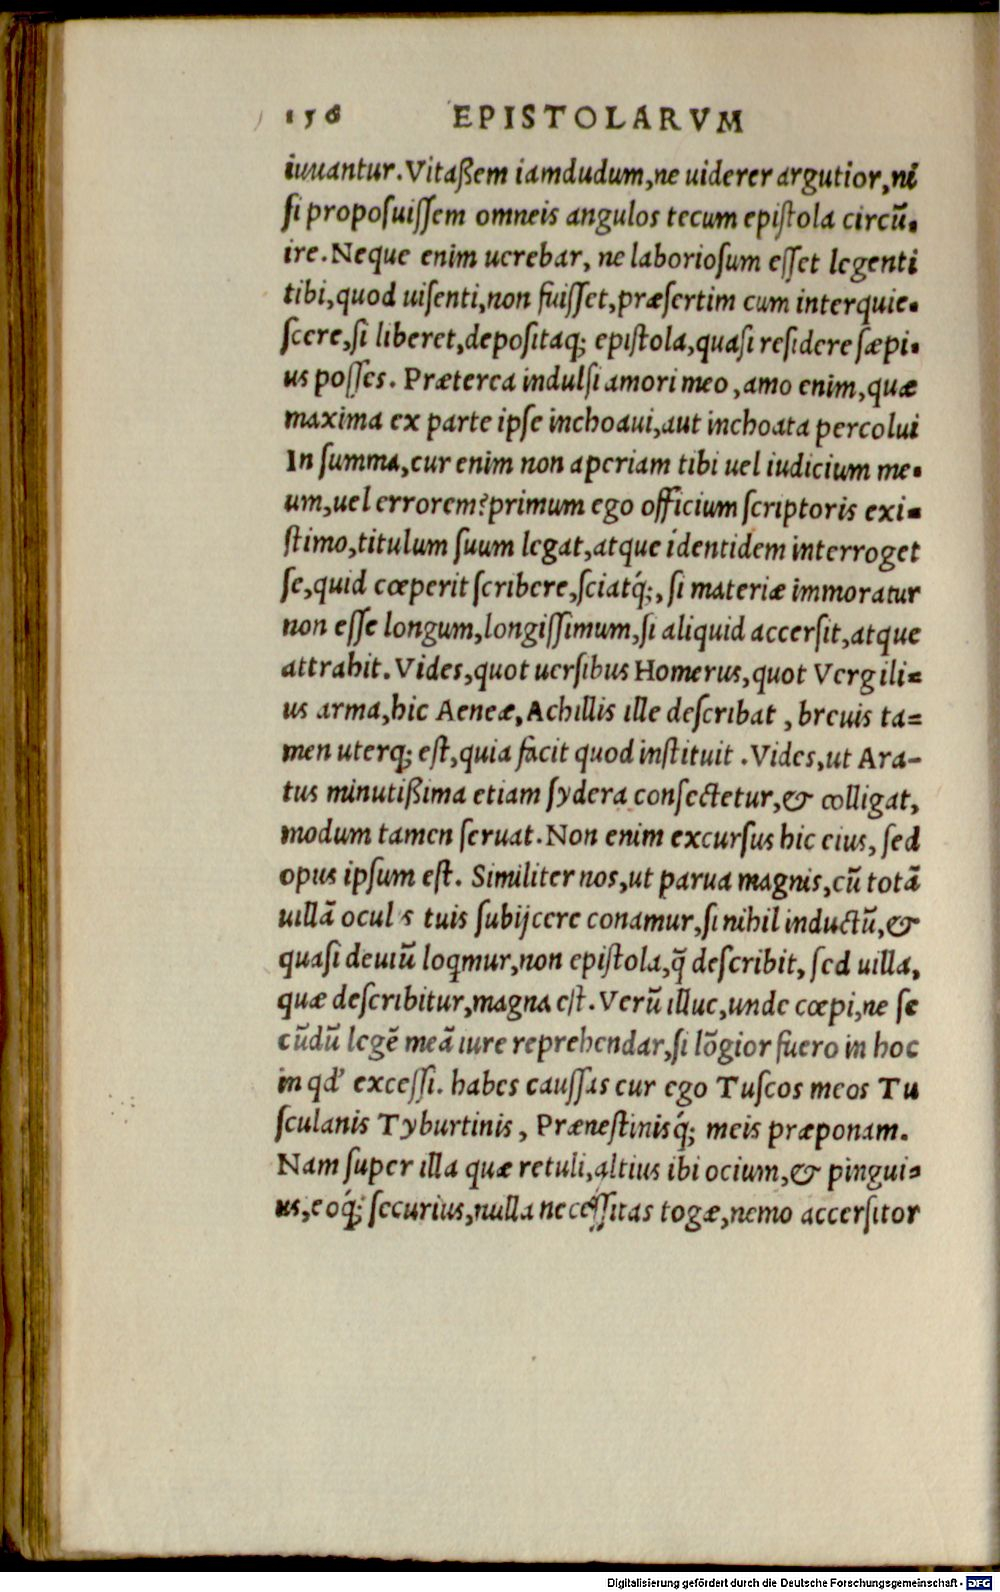 156 EPISTOLARVM
iuuantur. Vitaßem iamdudum, ne uiderer argutior, ni
ſi propoſuiſſem omneis angulos tecum epiſtola circũ-
ire. Neque enim uerebar, ne laborioſum eſſet legenti
tibi, quod uiſenti, non fuiſſet, præſertim cum interquie-
ſcere, ſi liberet, depoſitaq; epiſtola, quaſi reſidere ſæpi-
us poſſes. Præterea indulſi amori meo, amo enim, quæ
maxima ex parte ipſe inchoaui, aut inchoata percolui
In ſumma, cur enim non aperiam tibi uel iudicium me-
um, uel errorem? primum ego officium ſcriptoris exi-
ſtimo, titulum ſuum legat, atque identidem interroget
ſe, quid cœperit ſcribere, ſciatq́;, ſi materiæ immoratur
non eſſe longum, longiſſimum, ſi aliquid accerſit, atque
attrahit. Vides, quot uerſibus Homerus, quot Vergili=
us arma, hic Aeneæ, Achillis ille deſcribat, breuis ta=
men uterq; eſt, quia facit quod inſtituit. Vides, ut Ara-
tus minutißima etiam ſydera conſectetur, & colligat,
modum tamen ſeruat. Non enim excurſus hic eius, ſed
opus ipſum eſt. Similiter nos, ut parua magnis, cũ totã
uillã ocul s tuis ſubijcere conamur, ſi nihil inductũ, &
quaſi deuiũ loqͣmur, non epiſtola, q̃ deſcribit, ſed uilla,
quæ deſcribitur, magna eſt. Verũ illuc, unde cœpi, ne ſe
cũdũ legẽ meã iure reprehendar, ſi lõgior fuero in hoc
in qd' exceſſi. habes cauſſas cur ego Tuſcos meos Tu
ſculanis Tyburtinis, Præneſtinisq́; meis præponam.
Nam ſuper illa quæ retuli, altius ibi ocium, & pingui=
us, eoq́; ſecurius, nulla neceſſitas togæ, nemo accerſitor
Digitalisierung gefördert durch die Deutsche Forschungsgemeinschaft - DFG